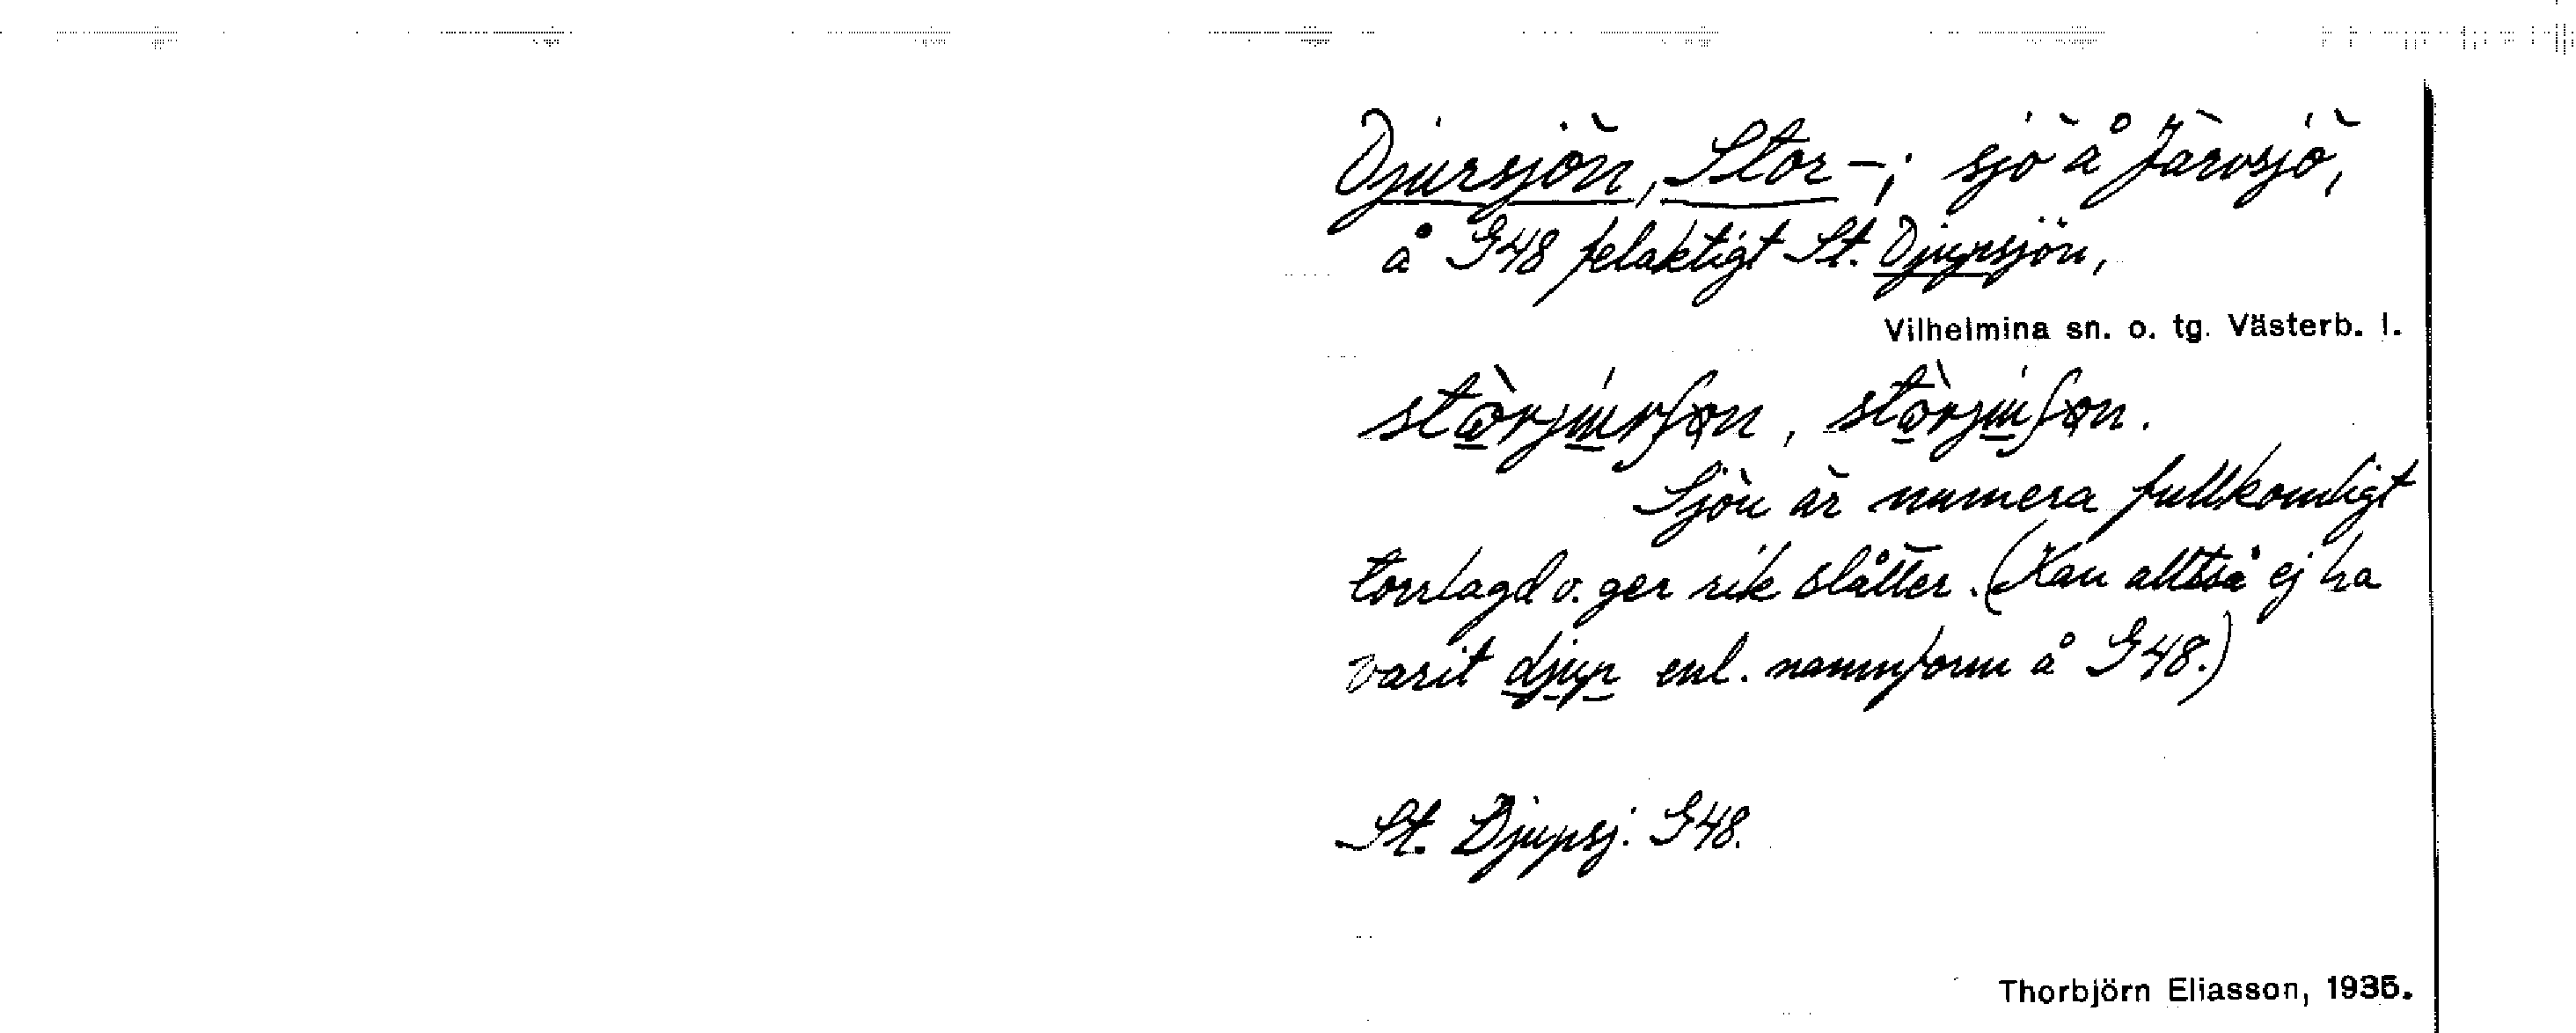 Djursjön, Stor-; sjö å Järvsjö,
å G48 felaktigt St. Djupsjön,
Vilhelmina sn. o. tg. Västerb. l.
Sjön är numera fullkomligt
torrlagd o. ger rik slåtter. (Kan alltså ej ha
varit djup enl. namnform å G48.)
St. Djupsj. G48.
Thorbjörn Eliasson, 1935.